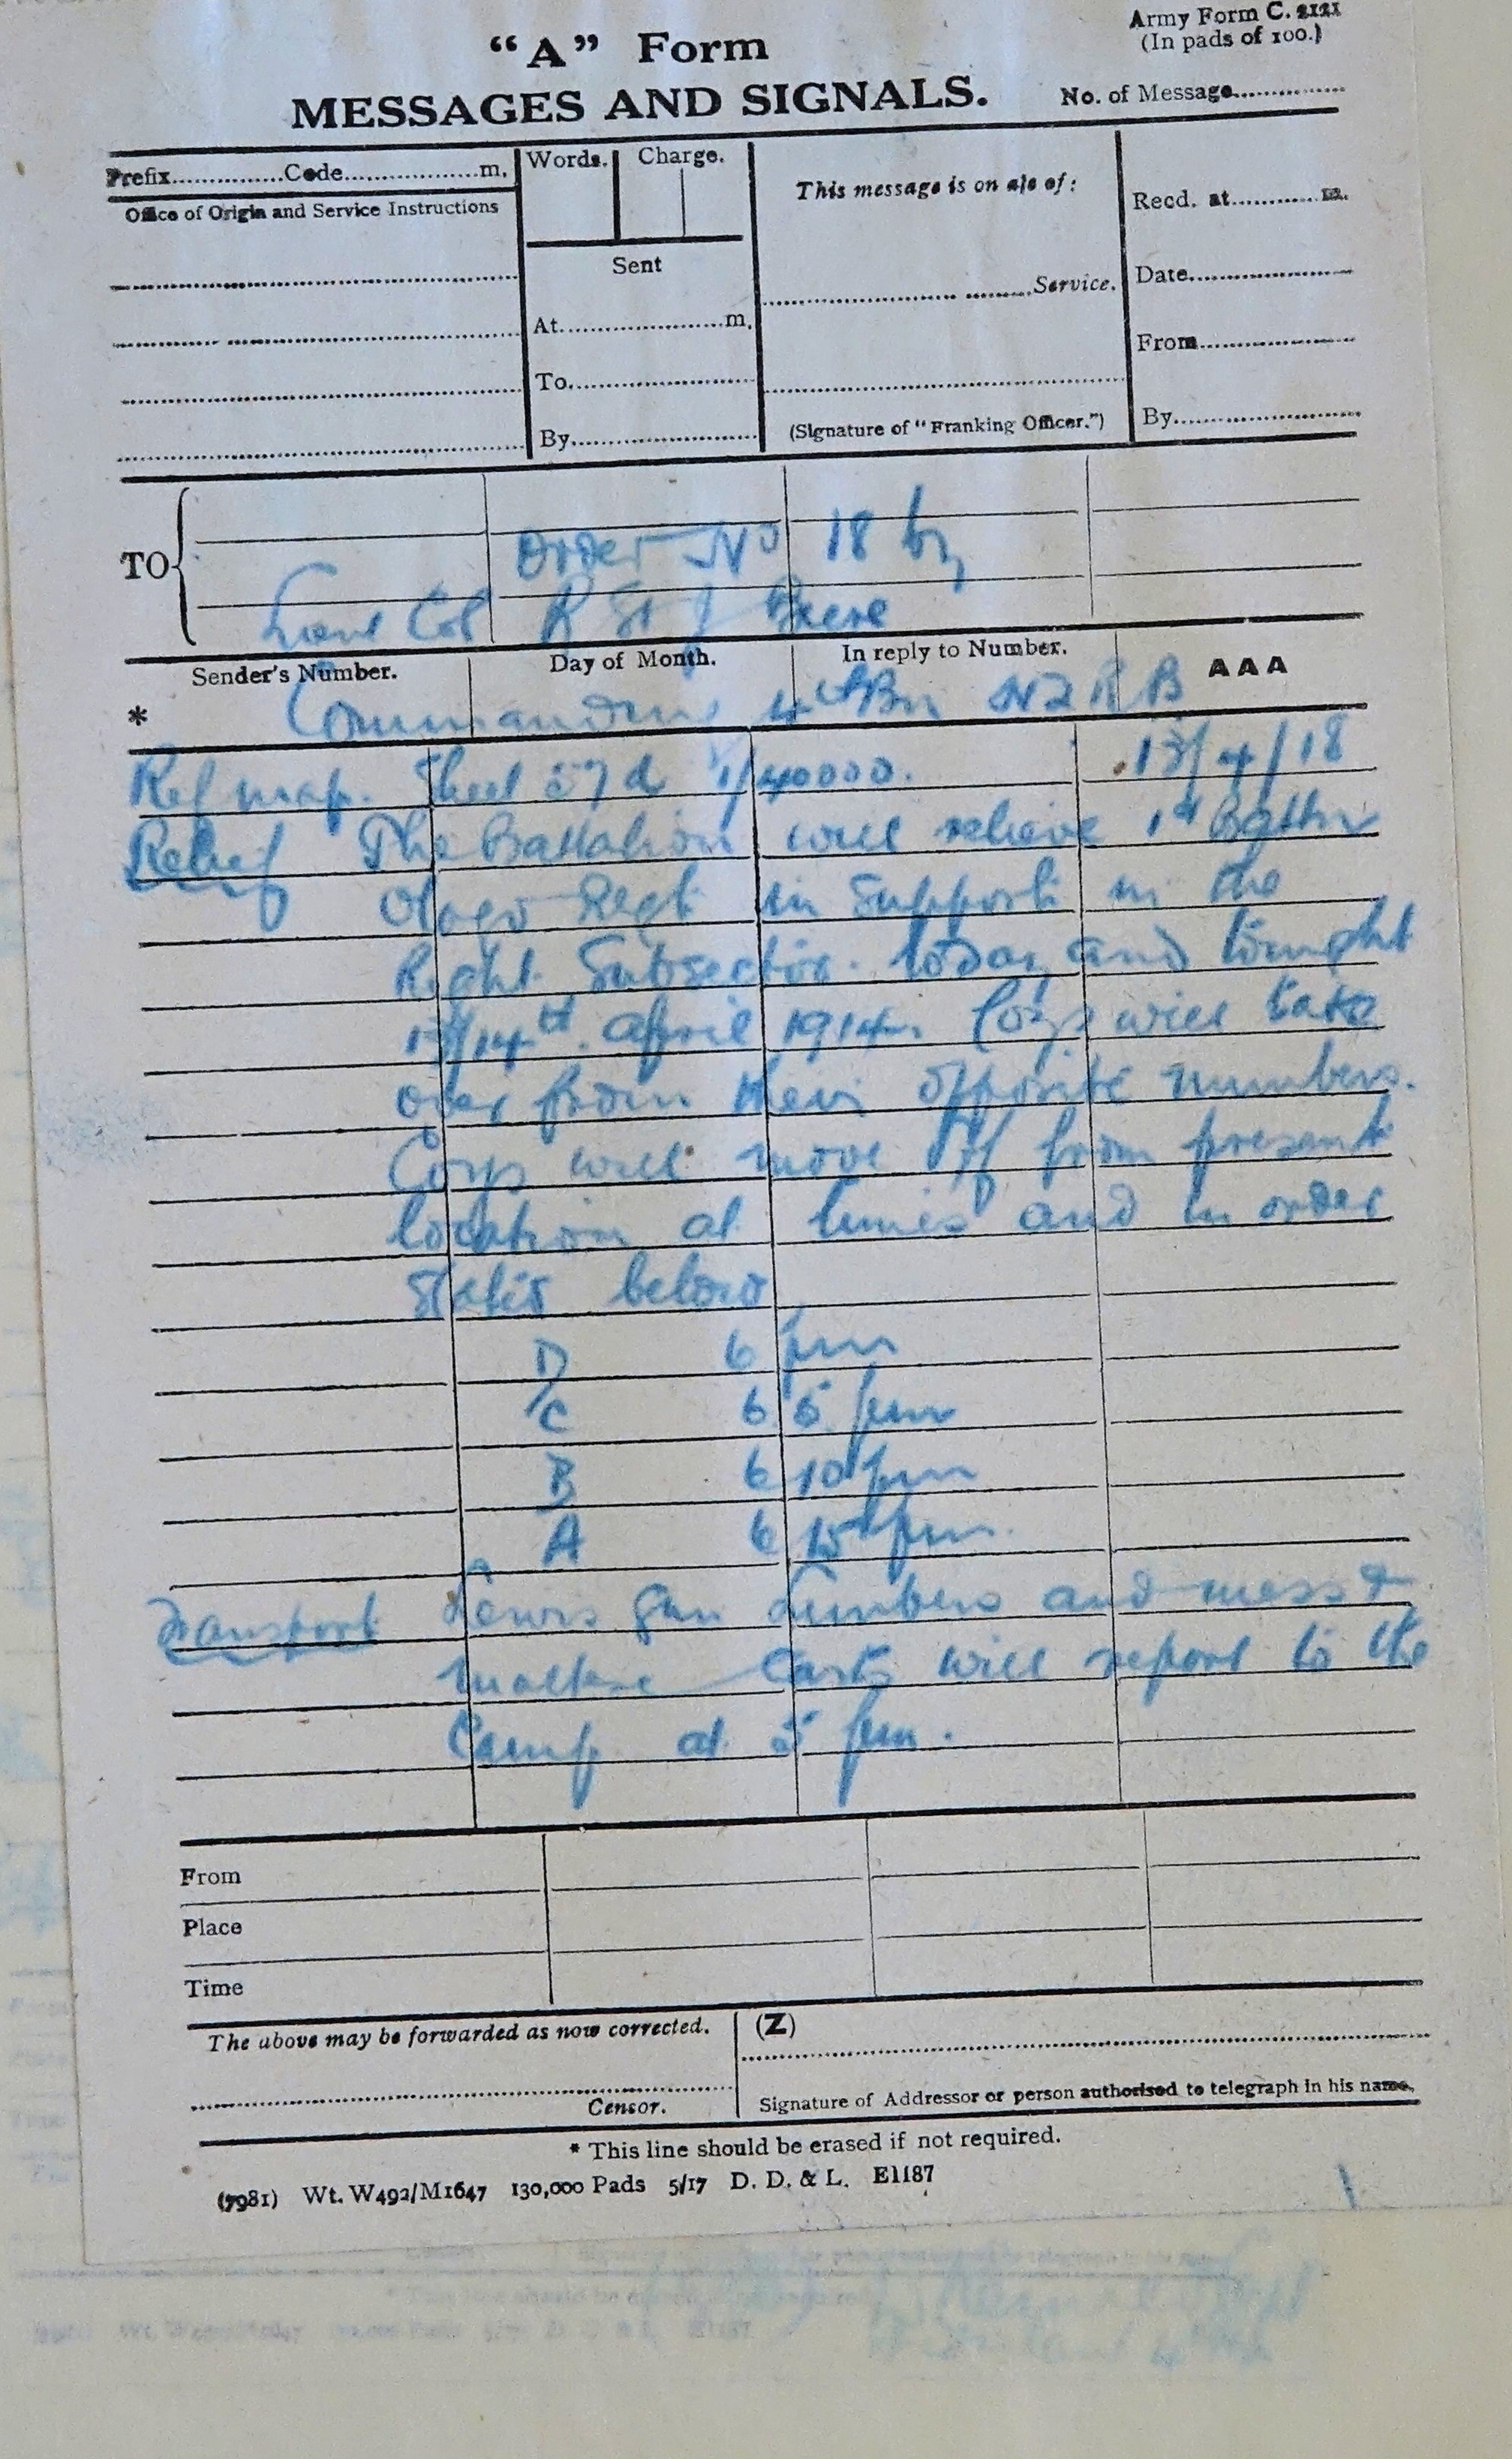 Army Form C. 2121
(In pads of 100.)
"A" Form
MESSAGES AND SIGNALS.
No. of Message...............
Prefix...............Code...................m.
Words.
Charge.
This message is on a/c of:
Recd. at............m.
Office of Origin and Service Instructions
Sent
...........................Service.
Date...................
At.......................m.
From...................
To.......................
(Signature of "Franking Officer.")
By.......................
By.......................
TO
Order No 18 by
Lieut Col R St J Beere
Sender's Number.
Day of Month.
In reply to Number.
AAA
*
Commanding 4th Bn NZRB
Ref map. Sheet 57d 1/40000. 13/4/18
Relief The Battalion will relieve 1st Battn
Otago Regt in Support in the
Right Subsector today and tonight
13/14th April 1914. Coys will take
over from their opposite numbers.
Coys will move off from present
location at times and in order
below
D 6 pm
C 6 5 pm
B 6 10 pm
A 6 15 pm.
Transport Lewis gun Limbers and mess &
maltese carts will report to the
Camp at 5 pm.
From
Place
Time
The above may be forwarded as now corrected.
(Z)
Censor.
Signature of Addressor or person authorised to telegraph in his name.
* This line should be erased if not required.
(7981) Wt. W492/M1647 130,000 Pads 5/17 D. D. & L. E1187